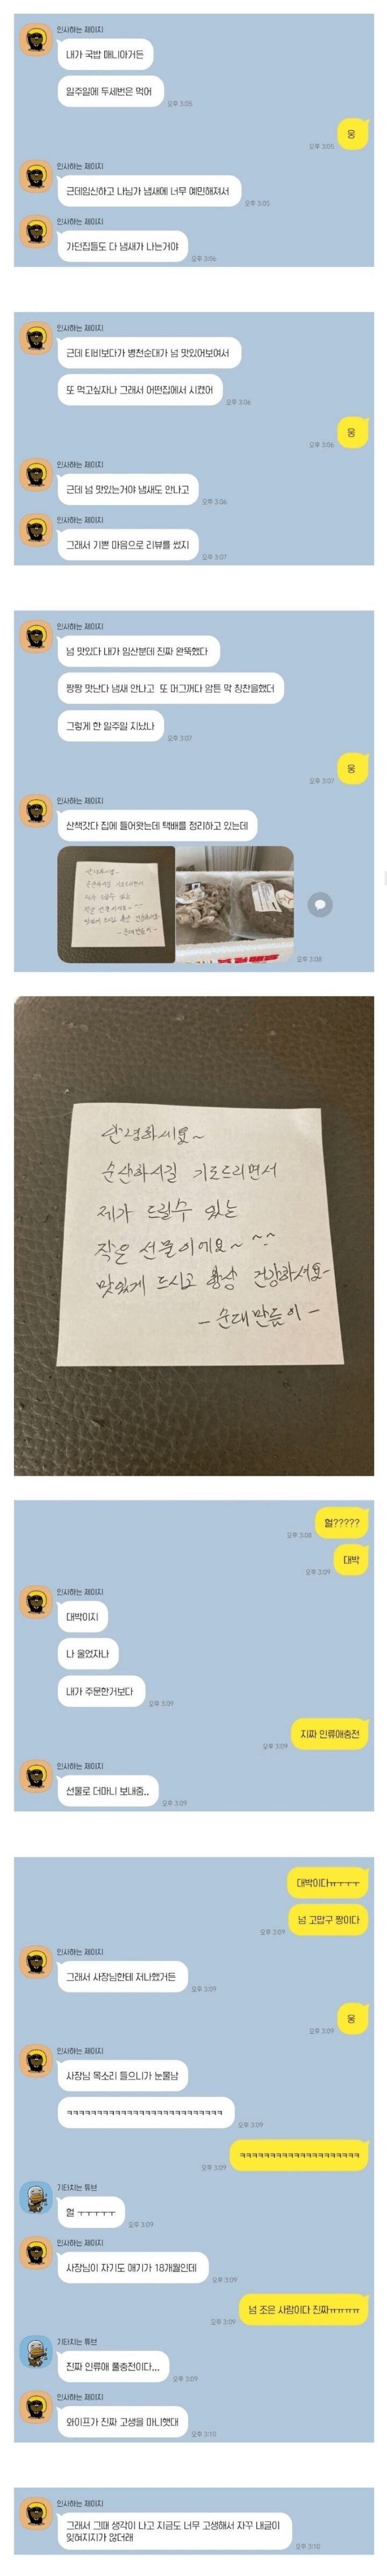 인사하는 제이지
내가 국밥 매니아거든
일주일에 두세번은 먹어
오후 3:05
웅
오후 3:05
인사하는 제이지
근데임신하고 나님가 냄새에 너무 예민해져서
오후 3:05
인사하는 제이지
가던집들도 다 냄새가 나는거야
오후 3:06
인사하는 제이지
근데 티비보다가 병천순대가 넘 맛있어보여서
또 먹고싶자나 그래서 어떤집에서 시켰어
오후 3:06
웅
오후 3:06
인사하는 제이지
근데 넘 맛있는거야 냄새도 안나고
오후 3:06
인사하는 제이지
그래서 기쁜 마음으로 리뷰를 썼지
오후 3:07
인사하는 제이지
넘 맛있다 내가 임산분데 진짜 완뚝했다
짱짱 맛난다 냄새 안나고 또 머그꺼다 암튼 막 칭찬을했더
그렇게 한 일주일 지났나
오후 3:07
웅
오후 3:07
인사하는 제이지
산책갓다 집에 들어왓는데 택배를 정리하고 있는데
오후 3:08
안녕하세요~
순산하시길 기도드리면서
제가 드릴수 있는
작은 선물이에요~ ^^
맛있게 드시고 항상 건강하세요~
- 순대만들이 -
헐?????
오후 3:08
대박
오후 3:09
인사하는 제이지
대박이지
나 울었자나
내가 주문한거보다
오후 3:09
지짜 인류애충전
오후 3:09
인사하는 제이지
선물로 더마니 보내줌..
오후 3:09
대박이다ㅠㅜㅜㅜ
넘 고맙구 짱이다
오후 3:09
인사하는 제이지
그래서 사장님한테 저나했거든
오후 3:09
웅
오후 3:09
인사하는 제이지
사장님 목소리 들으니가 눈물남
ㅋㅋㅋㅋㅋㅋㅋㅋㅋㅋㅋㅋㅋㅋㅋㅋㅋㅋㅋㅋㅋㅋㅋㅋㅋㅋ
오후 3:09
ㅋㅋㅋㅋㅋㅋㅋㅋㅋㅋㅋㅋㅋㅋㅋㅋㅋㅋㅋㅋ
오후 3:09
기타치는 튜브
헐 ㅜㅜㅜㅜㅜ
오후 3:09
인사하는 제이지
사장님이 자기도 애기가 18개월인데
오후 3:09
넘 조은 사람이다 진짜ㅠㅠㅠㅠ
오후 3:09
기타치는 튜브
진짜 인류애 풀충전이다...
오후 3:09
인사하는 제이지
와이프가 진짜 고생을 마니햇대
오후 3:10
인사하는 제이지
그래서 그때 생각이 나고 지금도 너무 고생해서 자꾸 내글이
잊혀지지가 않더래
오후 3:10